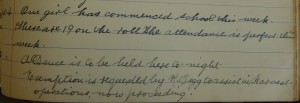 One girl has commenced school this week.
There are 19 on the roll the attendance is perfect this
week.
A Dance is to be held here to-night.
Exemption is requested by K. to assist in Harvest
operations now proceeding.